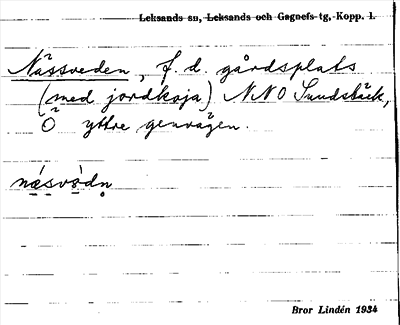 Leksands sn, Leksands och Gagnefs tg, Kopp. l.
Nässveden, f. d. gårdsplats
(med jordkoja) NNO Sundsbäck,
Ö yttre genvägen.
næ̀svò̀dn̥
Bror Lindén 1934